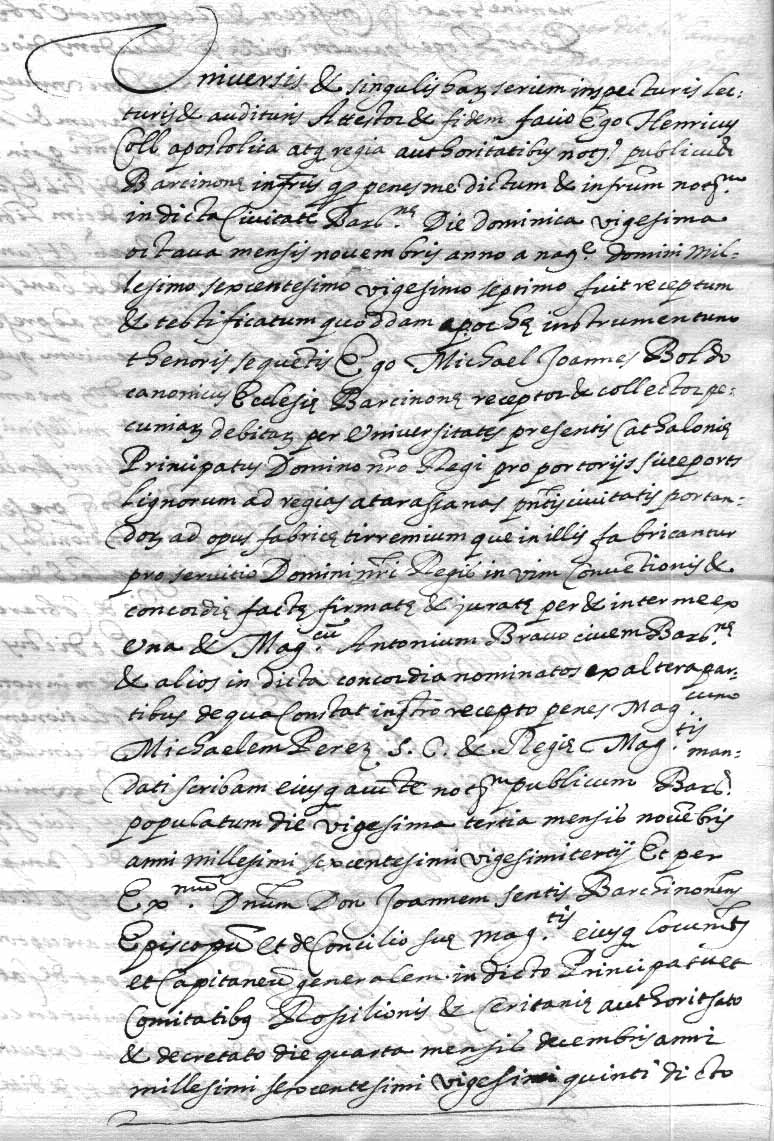 Universis & singulis hanc seriem inspecturis lec:
turis & audituris Attestor & fidem facio Ego Henricus
Coll apostolica atq regia authoritatibus notr. publicus
Barcinonę infrus qp penes me dictum & infrum notm.
in dicta Civitate Barne. Die Dominica vigesima
octava mensis novembris anno a nate. domini Mil-
lesimo sexcentesimo vigesimo septimo fuit receptum
& testificatum quoddam apochę instrumentum
thenoris sequentis Ego Michael Joannes Boldo
canonicus Ecclesię Barcinonę receptor & collector pe:
cuniaꝝ debitaꝝ per Universitates presentis Cathalonię
Principatus Domino nro Regi pro portorijs sive ports
Lignorum ad regias atarasanas pntis civitatis portan-
doꝝ ad opus fabricę tirremium que in illis fabricantur
pro servitio Domini nri Regis in vim Conventionis &
concordię factę firmatę & juratę per & inter me ex
una & Magcum. Antonium Bravo civem Barne.
& alios in dicta concordia nominatos ex altera par-
tibus de qua Constat instro recepto penes Magcum.
Michaelem Perez S. C. & Regię Magtis. man-
dati scribam eiusq auctte notm publicum Bar.
populatum die vigesima tertia mensis novebris
anni millesimi sexcentesimi vigesimi tertij Et per
Exmum. Dnum Don Joannem Sentis Barchinonens
Episcopu et de Concilio suę Magtis. eiusq Locumts
et Capitaneu generalem in dicto Principatu et
Comitatibq Rossilionis & Ceritanię authoritsato
& decretato die quarta mensis decembris anni
millesimi sexcentesimi vigesimi quinti dicto